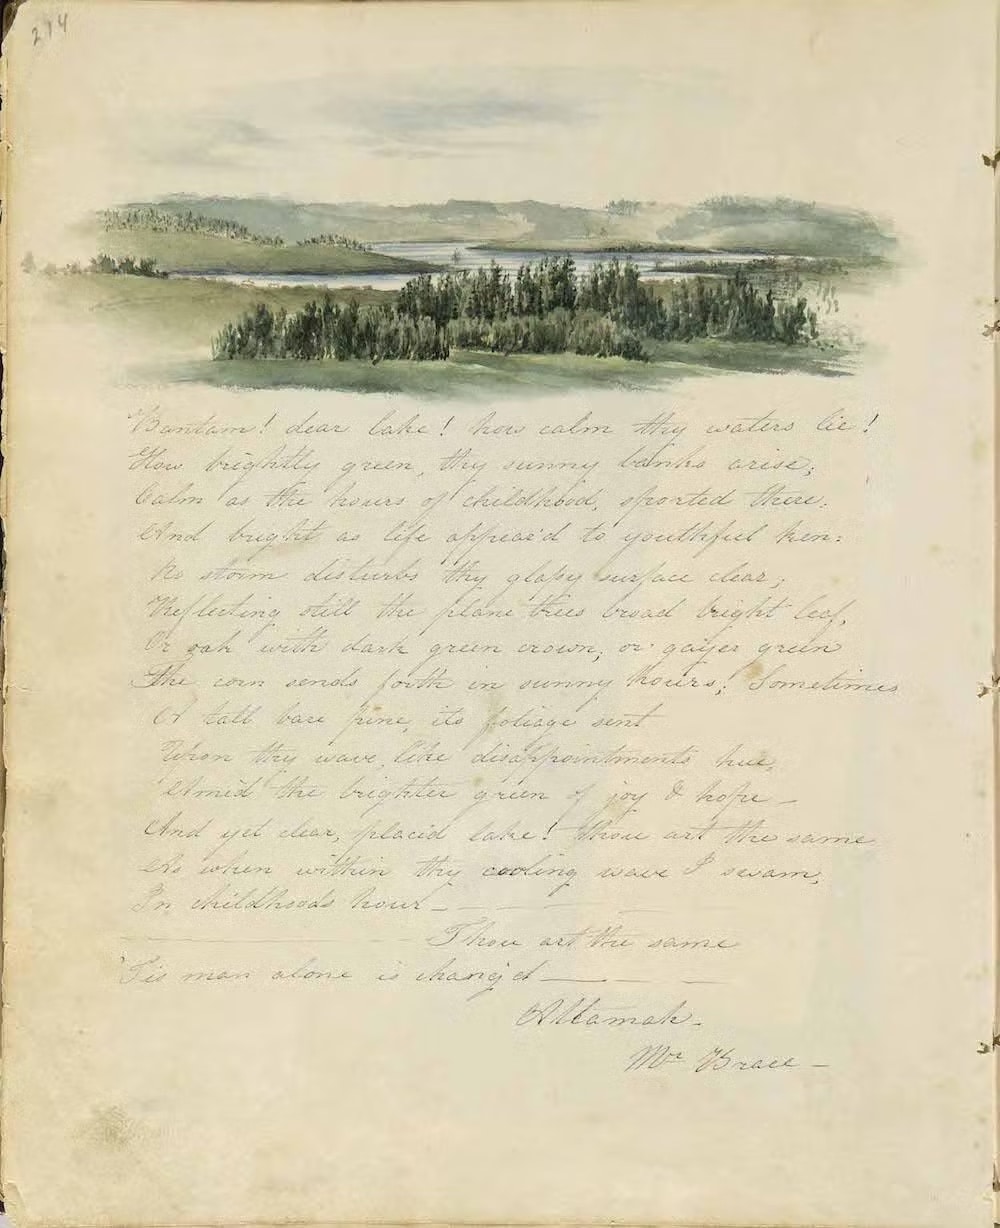 214
Bantam! dear lake! how calm thy waters lie!
How brightly green, thy sunny banks arise;
Calm as the hours of childhood, sported there,
And bright as life appear'd to youthful ken:
No storm disturbs thy glassy surface clear;
Reflecting still the plane trees broad bright leaf,
Or oak with dark green crown; or gayer green
The corn sends forth in sunny hours; Sometimes
A tall bare pine, its foliage sent
Upon thy wave, like disappointments hue,
Amid the brighter green of joy & hope –
And yet clear, placid lake! thou art the same
As when within thy cooling wave I swam,
In childhoods hour –
Thou art the same
'Tis man alone is chang'd –
Altamah –
Mr Brace –